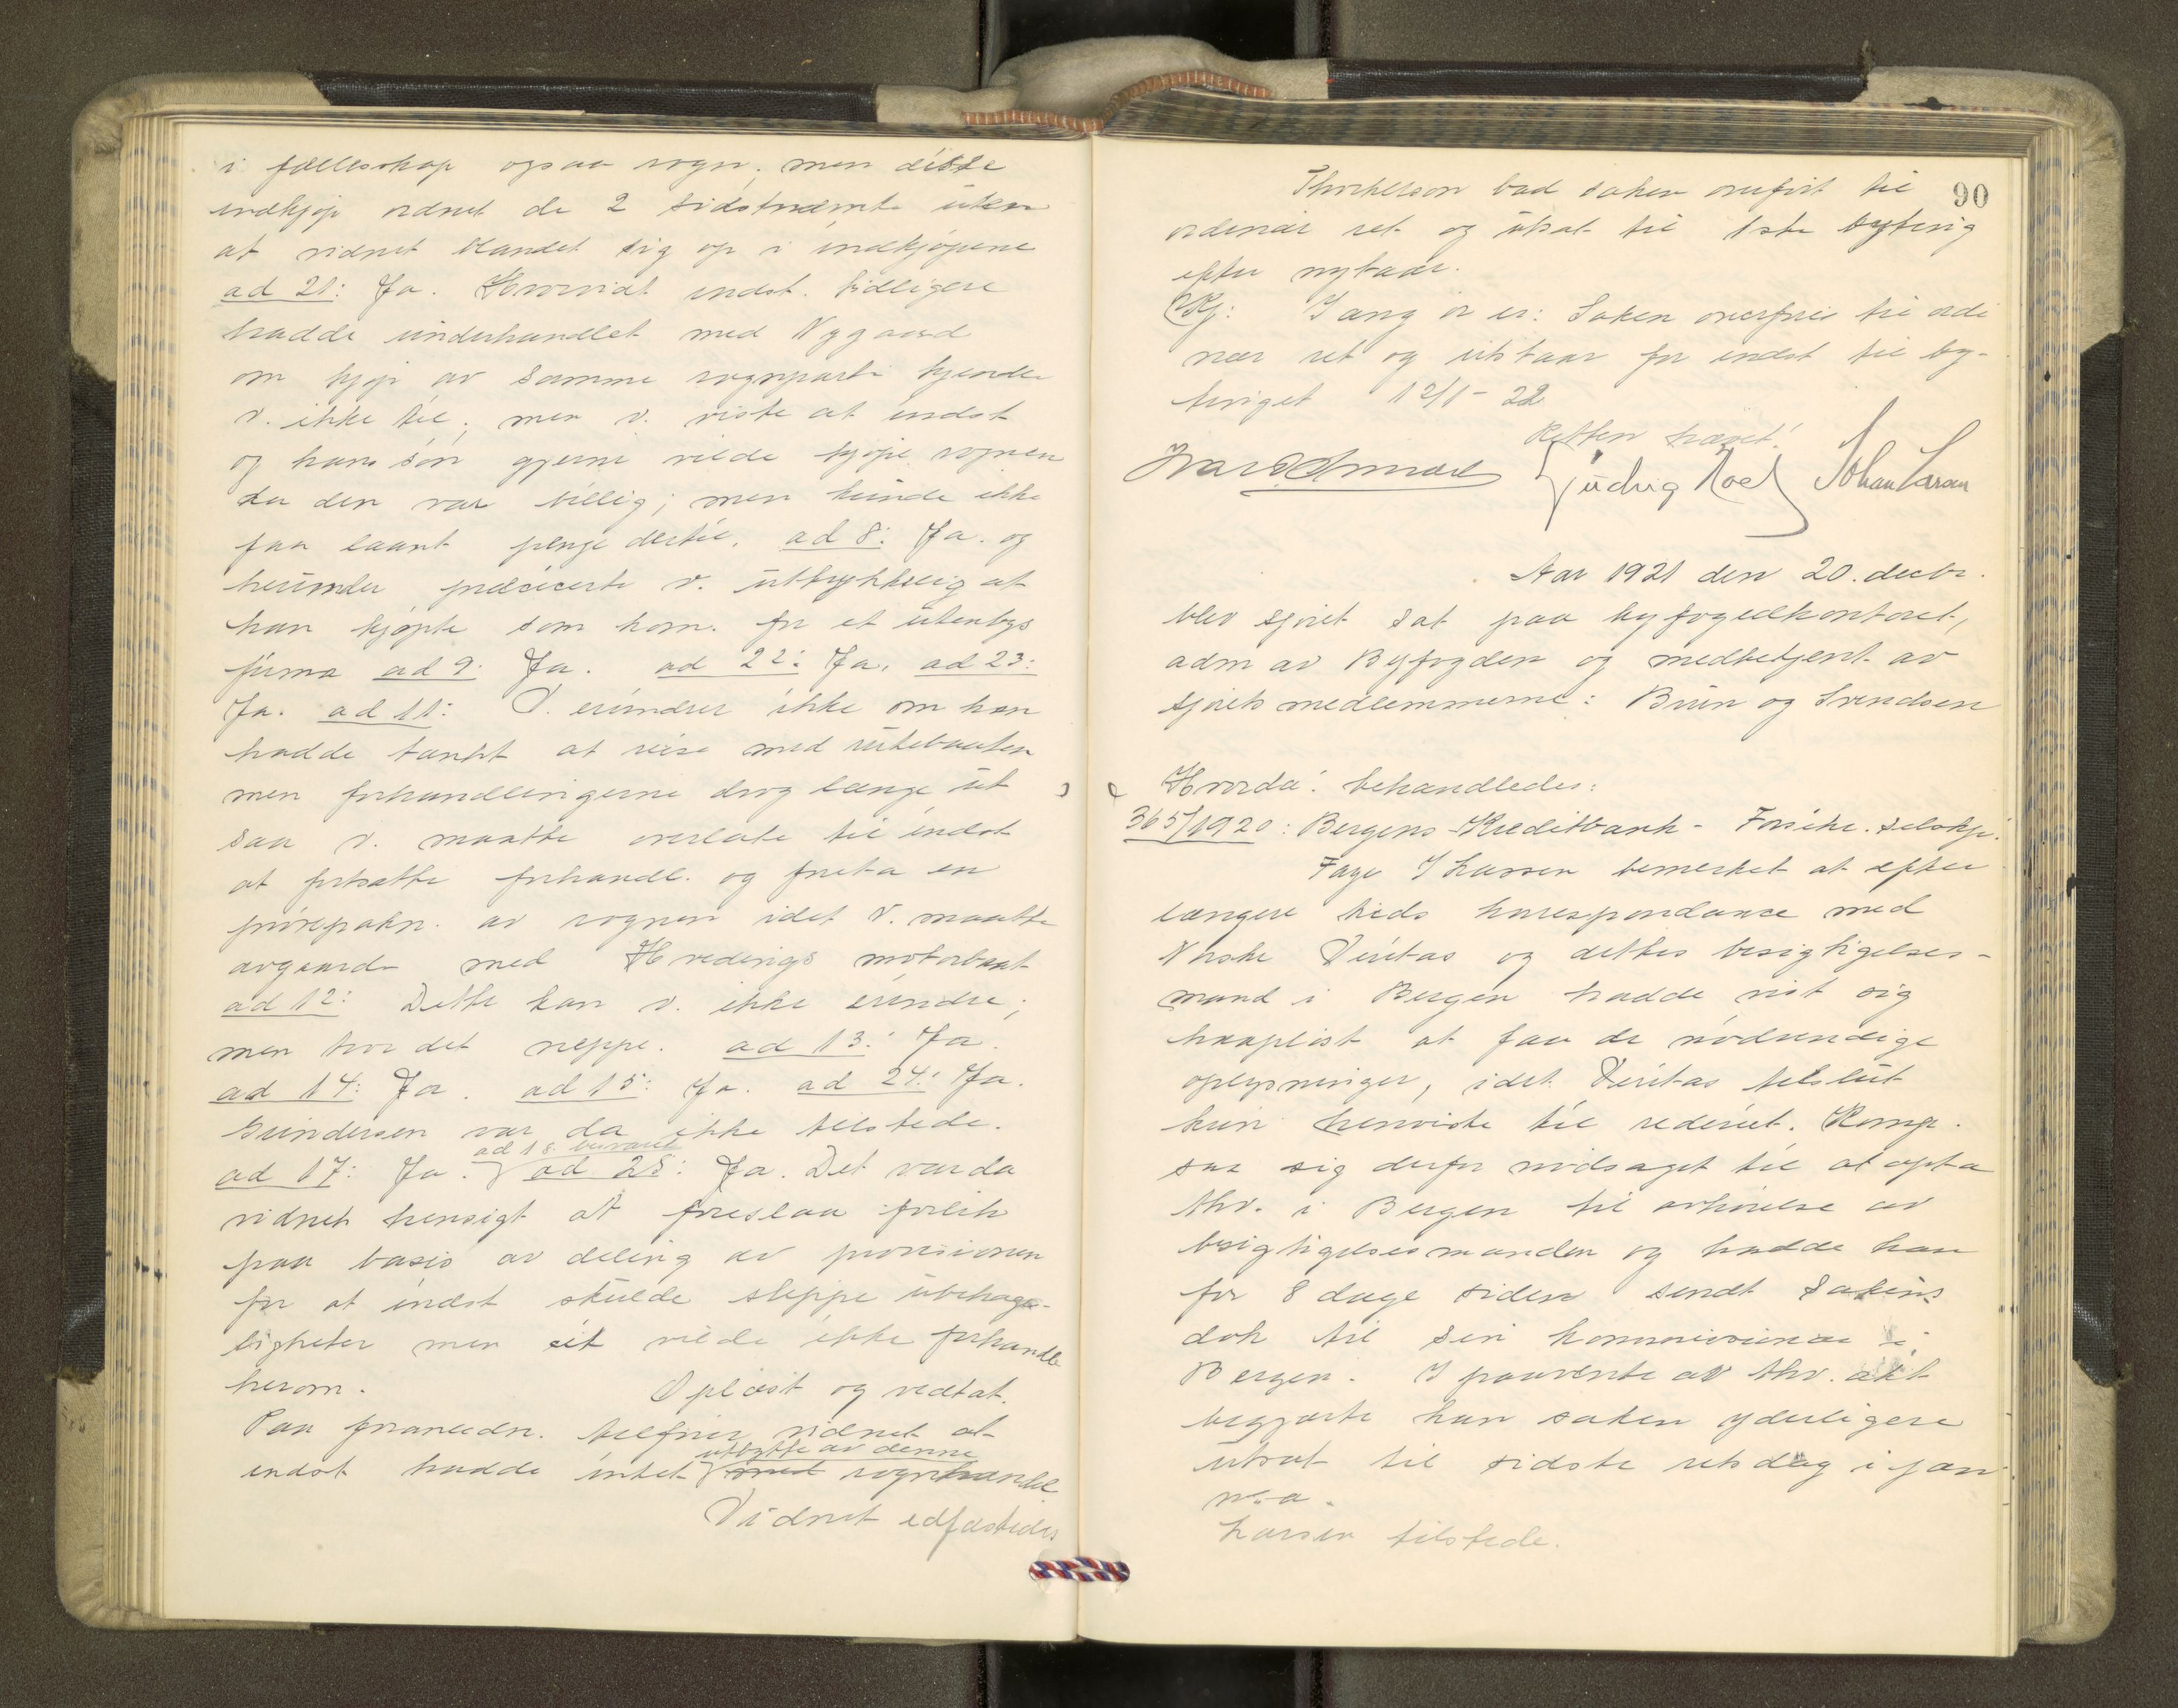 i fællesskap ogsaa rogn; men disse
indkjøp ordnet de 2 sidstnævnte uten
at vidnet blandet sig op i indkjøpene
ad 21: Ja. Hvorvidt indst. tidligere
hadde underhandlet med Nygaard
om kjøp av samme rognparti kjender
v. ikke til; men v. viste at indst
og hans søn gjerne vilde kjøpe rognen
da den var billig; men kunde ikke
faa laant penge dertil. ad 8: Ja. og
herunder præciserte v. uttrykkelig at
han kjøpte som kom. for et utenbys
firma ad 9: Ja. ad 22: Ja. ad 23:
Ja. ad 11: V. erindrer ikke om han
hadde tænkt at reise med rutebaaten
men forhandlingerne drog længe ut
saa v. maatte overlate til indst
at fortsætte forhandl. og foreta en
prøvepakn. av rognen idet v. maatte
avgaarde med Hvedings motorbaat
ad 12: Dette kan v. ikke erindre;
men tror det neppe. ad 13: Ja.
ad 14: Ja. ad 15: Ja. ad 24: Ja.
Gundersen var da ikke tilstede.
ad 18. besvaret
ad 17: Ja. ad 25: Ja. Det var da
vidnets hensigt at foreslaa forlik
paa basis av deling av provisionen
for at indst skulde slippe ubehage-
ligheter men cit vilde ikke forhandle
herom. Oplæst og vedtat.
Paa foranledn. tilføier vidnet at
utbytte av denne
indst hadde intet med rognhandel
Vidnet edfæstedes
90
Thorkelson bad saken overført til
ordinær ret og utsat til 1ste byting
efter nytaar.
Kj: I ang ov er: Saken overføres til ordi
nær ret og utstaar for indst til by-
tinget 12/1-22
Retten hævet!
Ludvig Roel Johan Larsen
Aar 1921 den 20. decbr.
blev sjøret sat paa byfogedkontoret,
adm av Byfogden og medbetjent av
sjøretsmedlemmerne: Brun og Svendsen
Hvorda: behandledes:
365/1920: Bergens Kreditbank - Forsikr. selskp.
Faye I Larssen bemerket at efter
længere tids korrespondance med
Norske Veritas og dettes besigtigelses-
mand i Bergen hadde vist sig
haapløst at faa de nødvendige
oplysninger, idet Veritas tilslut
kun henviste til rederiet. Komp.
saa sig derfor nødsaget til at opta
thv. i Bergen til avhørelse av
besigtigelsesmanden og hadde han
for 8 dage siden sendt sakens
dok til sin kommissionær i
Bergen. I paavente av thv. akt
begjærte han saken yderligere
utsat til sidste retsdag i jan
n. a.
Larsen tilstede.